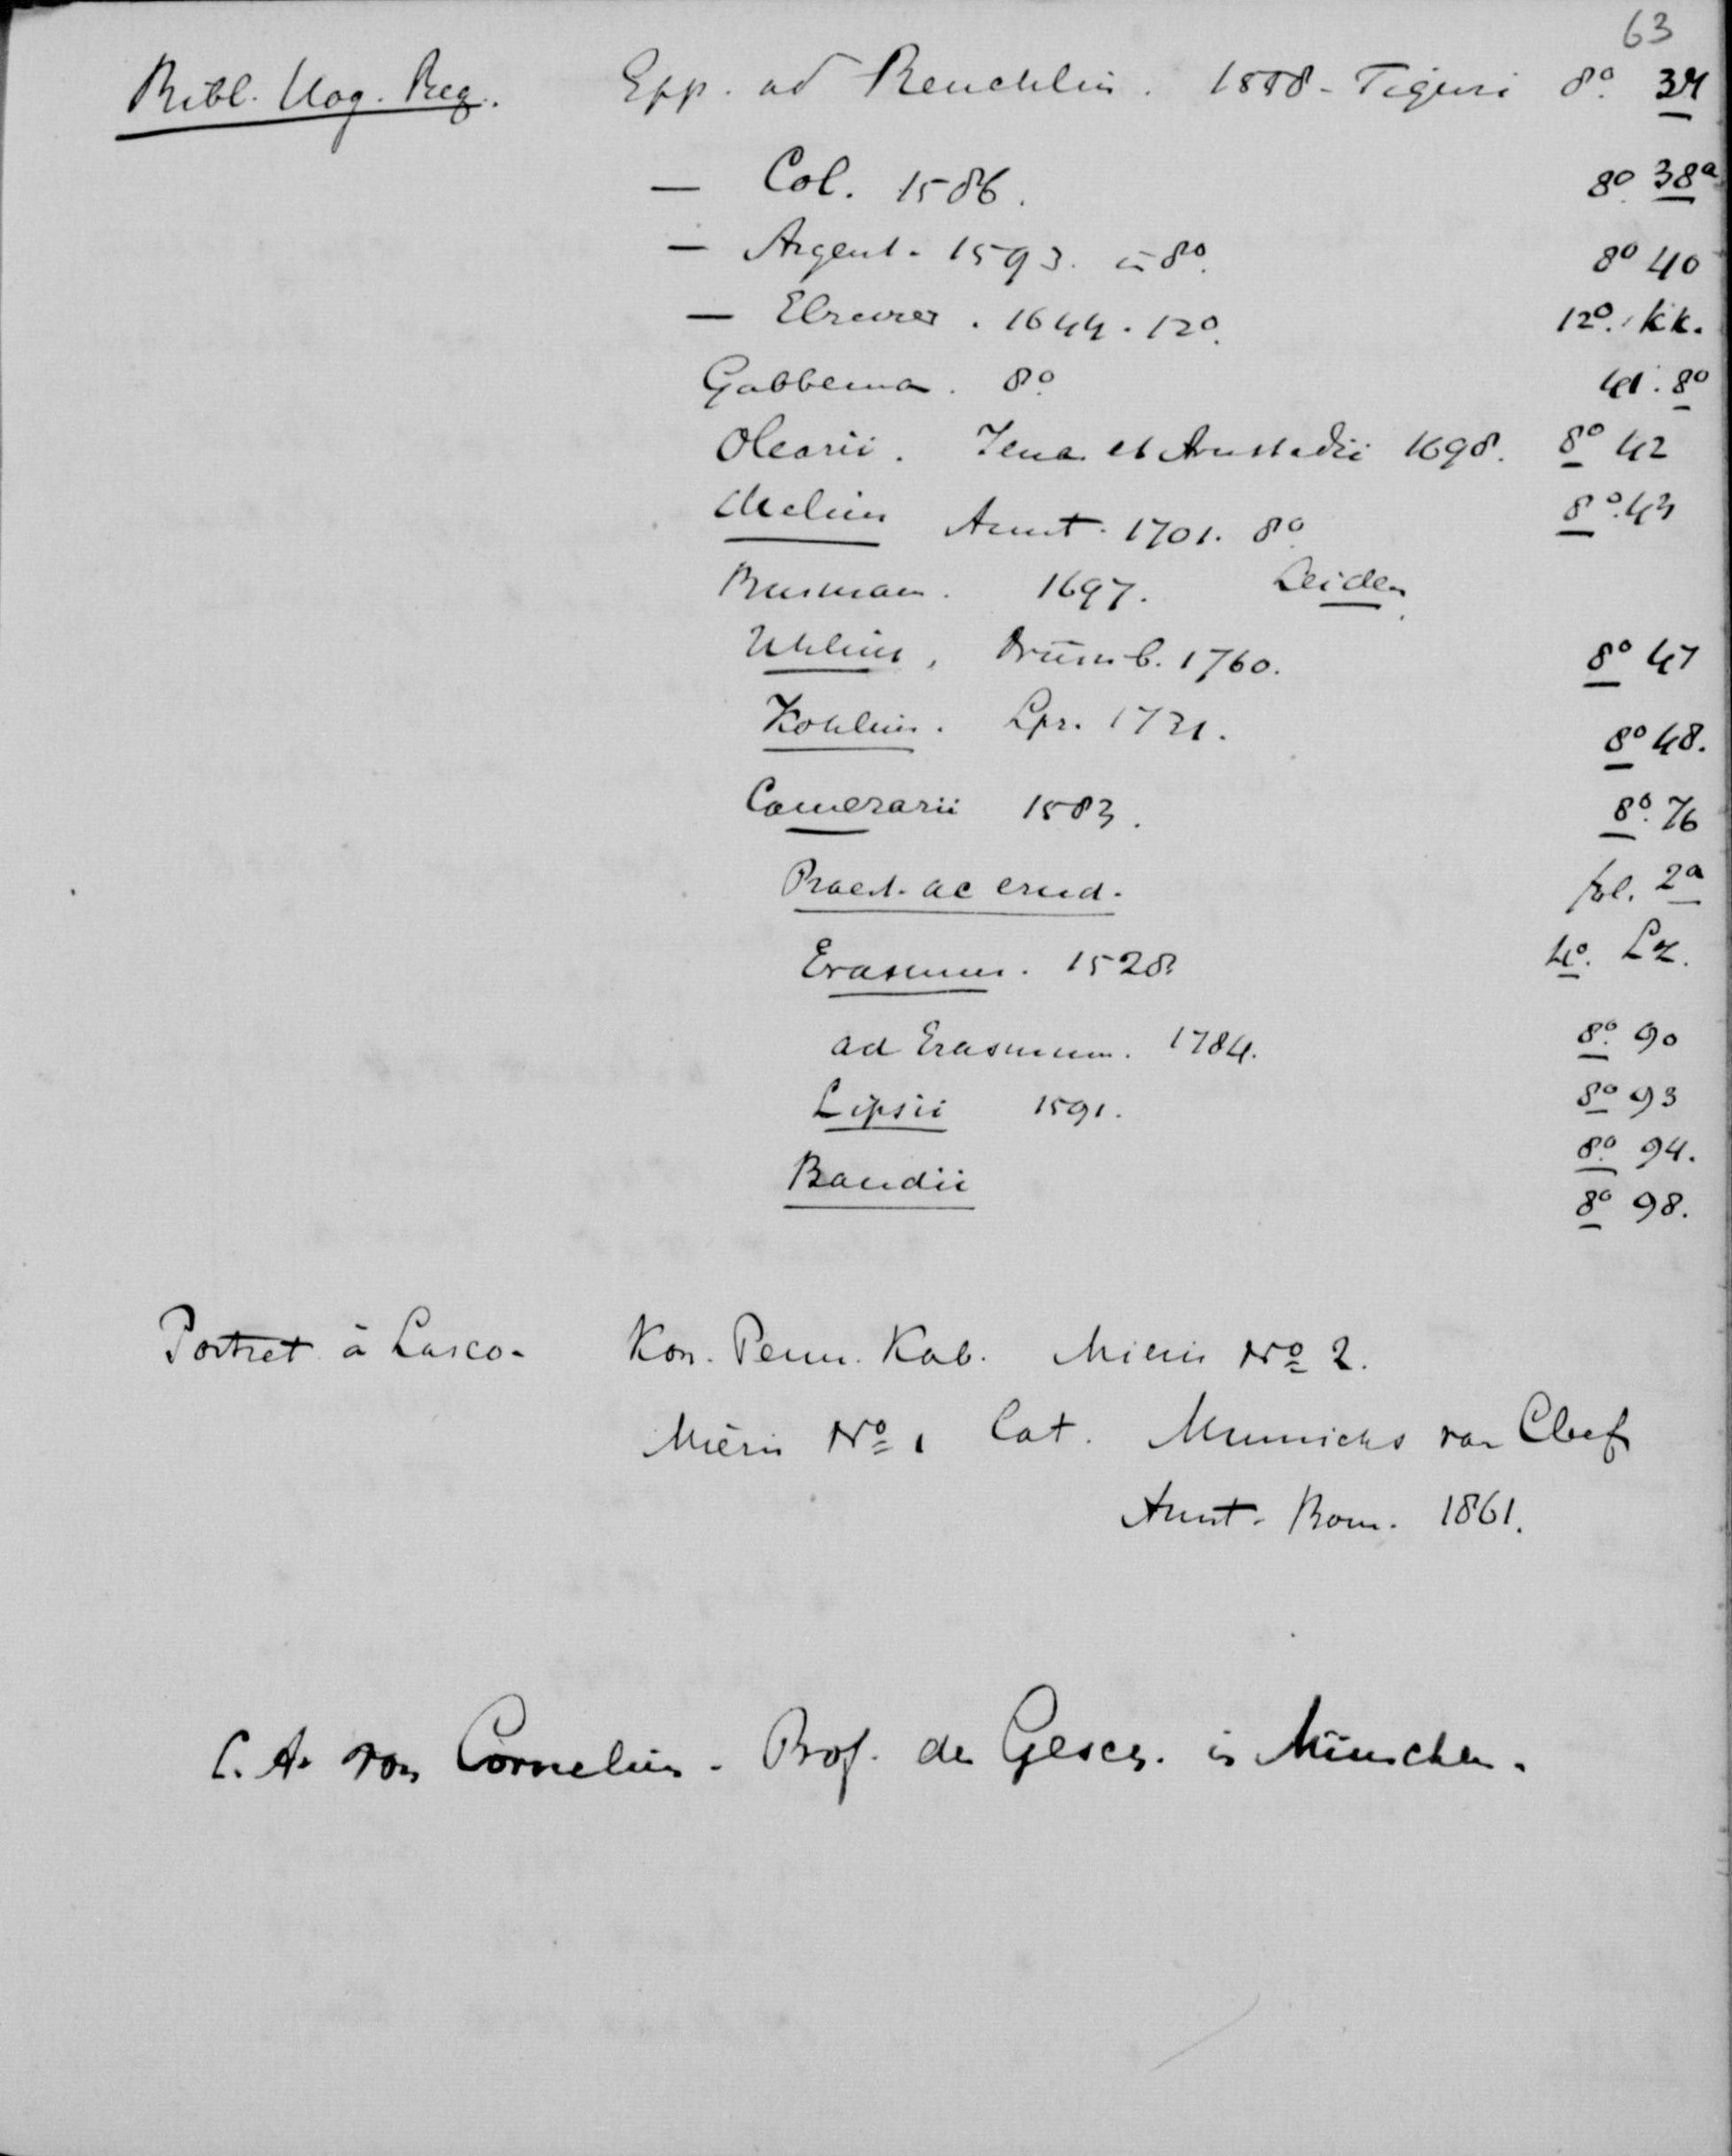 63
Bibl. Hag. Reg. Epp. ad Reuchlin. 1558 - Tiguri 8o. 37
— Col. 1586. 8o. 38a
— Argent. 1593. in 8o. 8o 40
— Elzevier. 1644. 12o. 12o. kk.
Gabbema. 8o 41. 8o
Olearii. Jena et Arnstadii 1698. 8o 42
Melius Amst. 1701. 8o 8o. 43
Burman. 1697. Leiden
Uhlius, 1760. 8o 47
Kohlius. Lps. 1731. 8o 48.
Camerarii 1583. 8o. 76
Praest. ac erud. fol. 2a
Erasmus. 1528. 4o.
ad Erasmum. 1784. 8o. 90
Lipsii 1591. 8o 93
8o. 94.
Baudii
8o 98.
Portret à Lasco. Kon. Penn. Kab. Mieris No 2.
Mieris No 1 Cat. Munnicks van Cleef
Amst. Bom. 1861.
C. A. von Cornelius. Prof. der Gesch. in München.